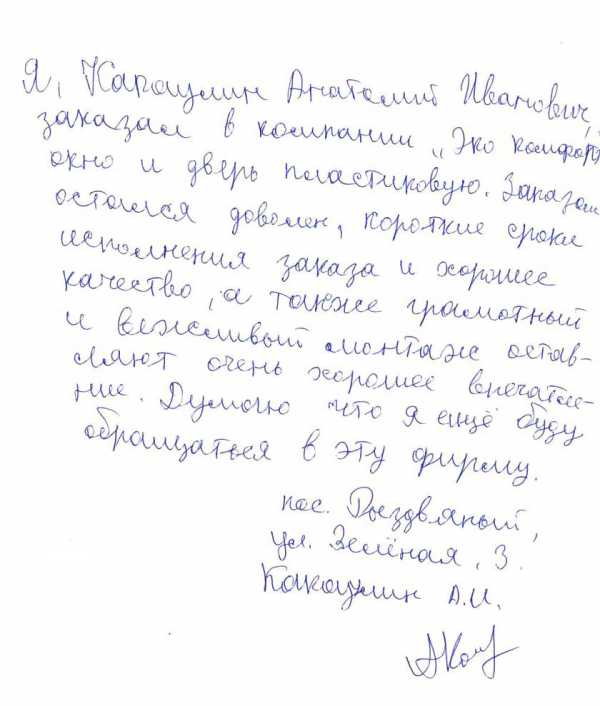 Я, Караулин Анатолий Иванович,
заказал в компании „Эко Комфорт
окно и дверь пластиковую. Заказом
остался доволен, короткие сроки
исполнения заказа и хорошее
качество, а также грамотный
и вежливый монтаж остав-
ляют очень хорошее впечатле-
ние. Думаю что я ещё буду
обращаться в эту фирму.
пос. Рыздвяный,
ул. Зелёная, 3.
А.И.